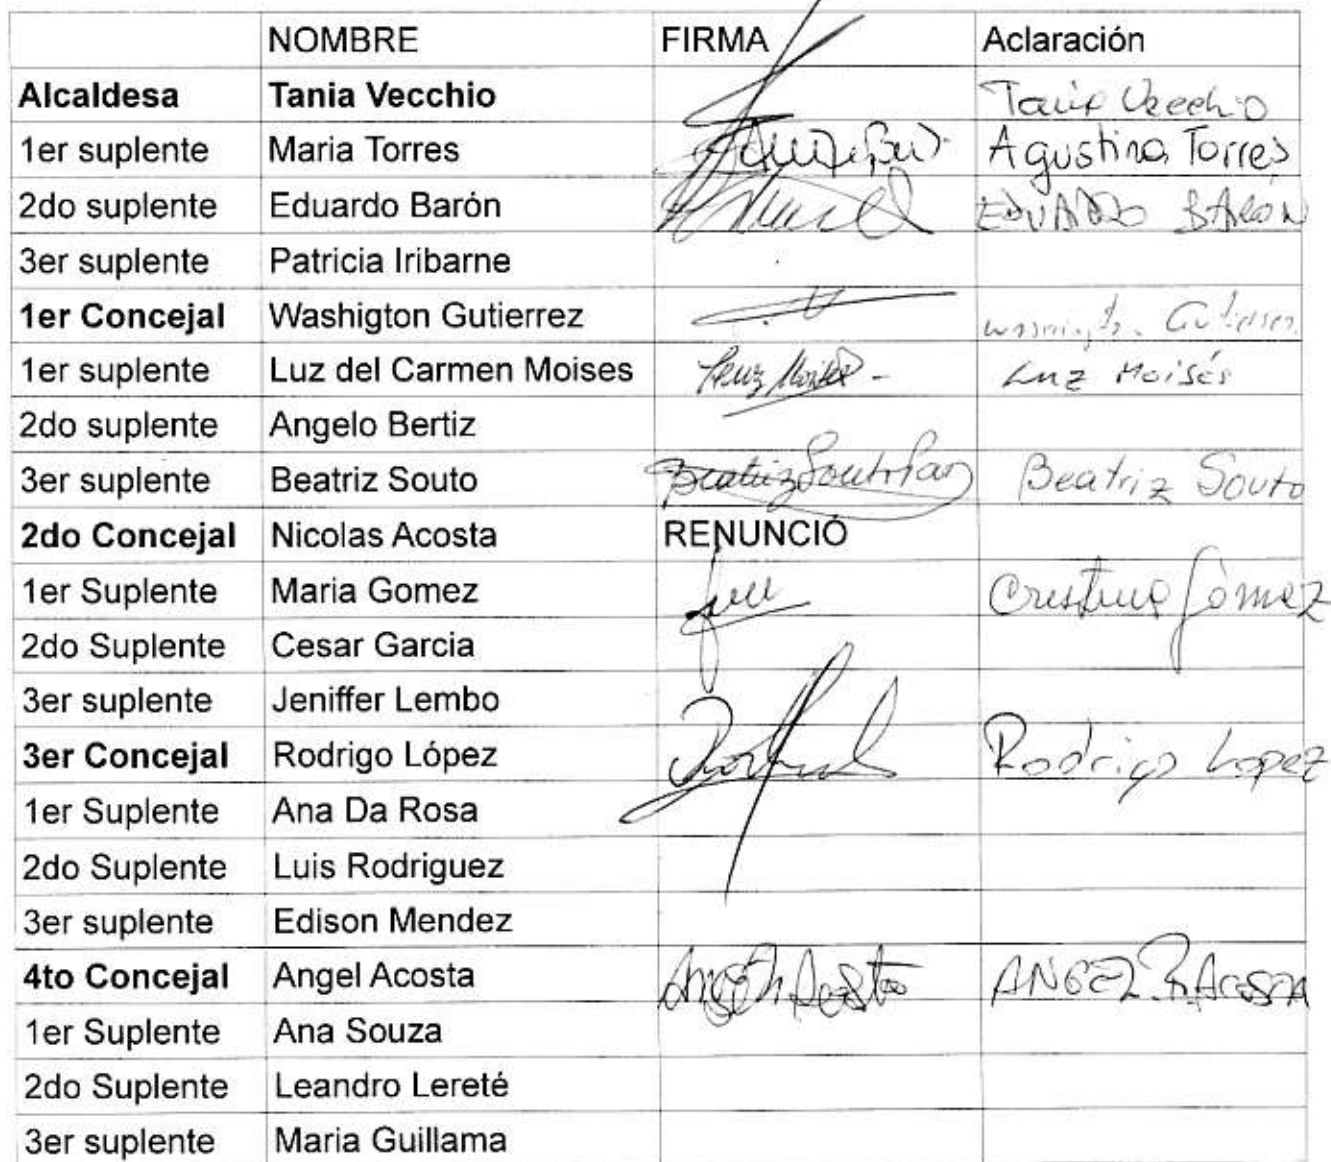 NOMBRE FIRMA Aclaración
Alcaldesa Tania Vecchio Tania Vecchio
1er suplente Maria Torres Agustina Torres
2do suplente Eduardo Barón EDUARDO BARÓN
3er suplente Patricia Iribarne
1er Concejal Washigton Gutierrez Washington Gutierrez
1er suplente Luz del Carmen Moises Luz Moisés - Luz Moisés
2do suplente Angelo Bertiz
3er suplente Beatriz Souto Beatriz Souto Paz Beatriz Souto
2do Concejal Nicolas Acosta RENUNCIÓ
1er Suplente Maria Gomez Cristina Gómez
2do Suplente Cesar Garcia
3er suplente Jeniffer Lembo
3er Concejal Rodrigo López Rodrigo Lopez
1er Suplente Ana Da Rosa
2do Suplente Luis Rodriguez
3er suplente Edison Mendez
4to Concejal Angel Acosta Angel Acosta ANGEL R. ACOSTA
1er Suplente Ana Souza
2do Suplente Leandro Lereté
3er suplente Maria Guillama